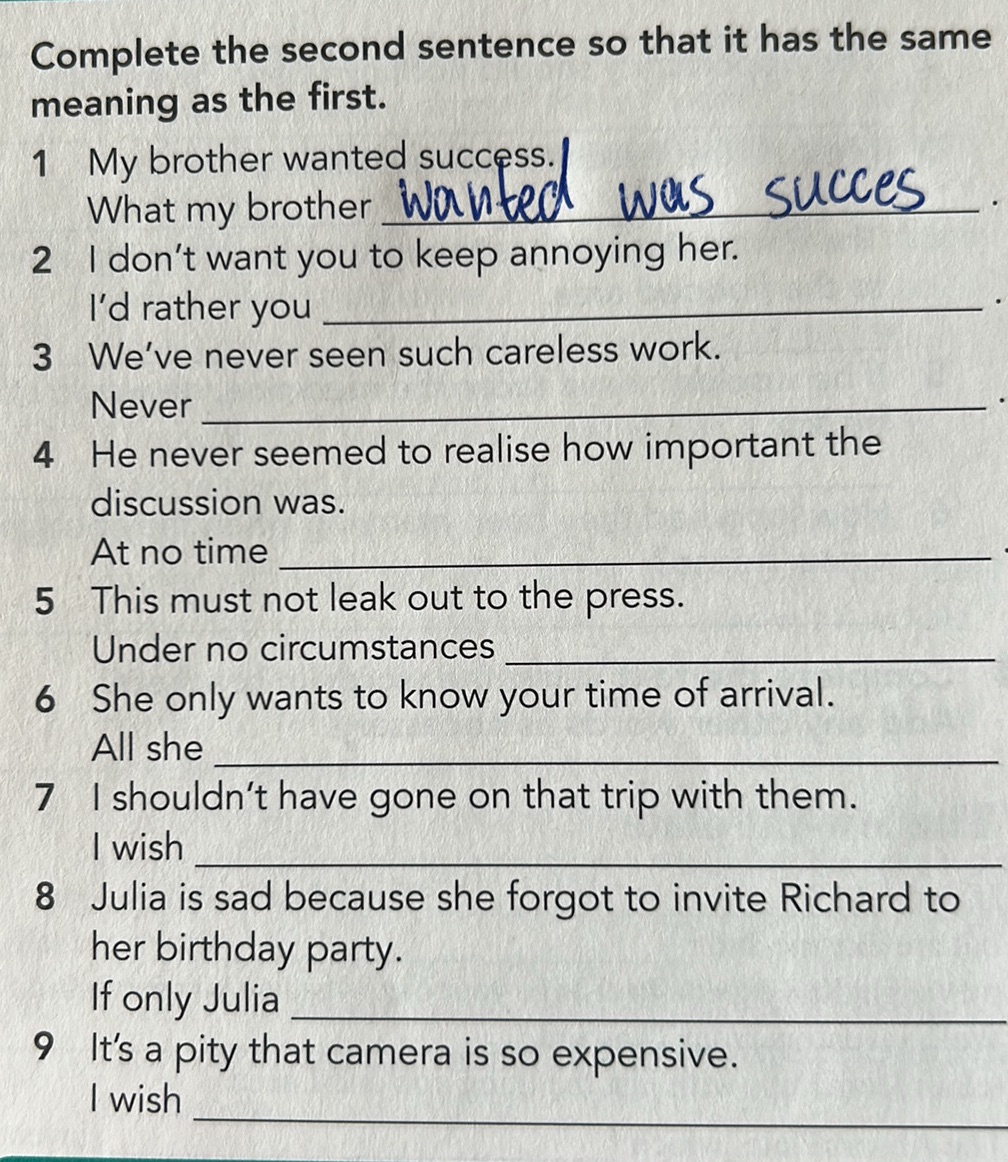 Complete the second sentence so that it has the same
meaning as the first.
1 My brother wanted success.
What my brother wanted was succes.
2 I don't want you to keep annoying her.
I'd rather you ____________.
3 We've never seen such careless work.
Never ____________.
4 He never seemed to realise how important the
discussion was.
At no time ____________.
5 This must not leak out to the press.
Under no circumstances ____________
6 She only wants to know your time of arrival.
All she ____________
7 I shouldn't have gone on that trip with them.
I wish ____________
8 Julia is sad because she forgot to invite Richard to
her birthday party.
If only Julia ____________
9 It's a pity that camera is so expensive.
I wish ____________